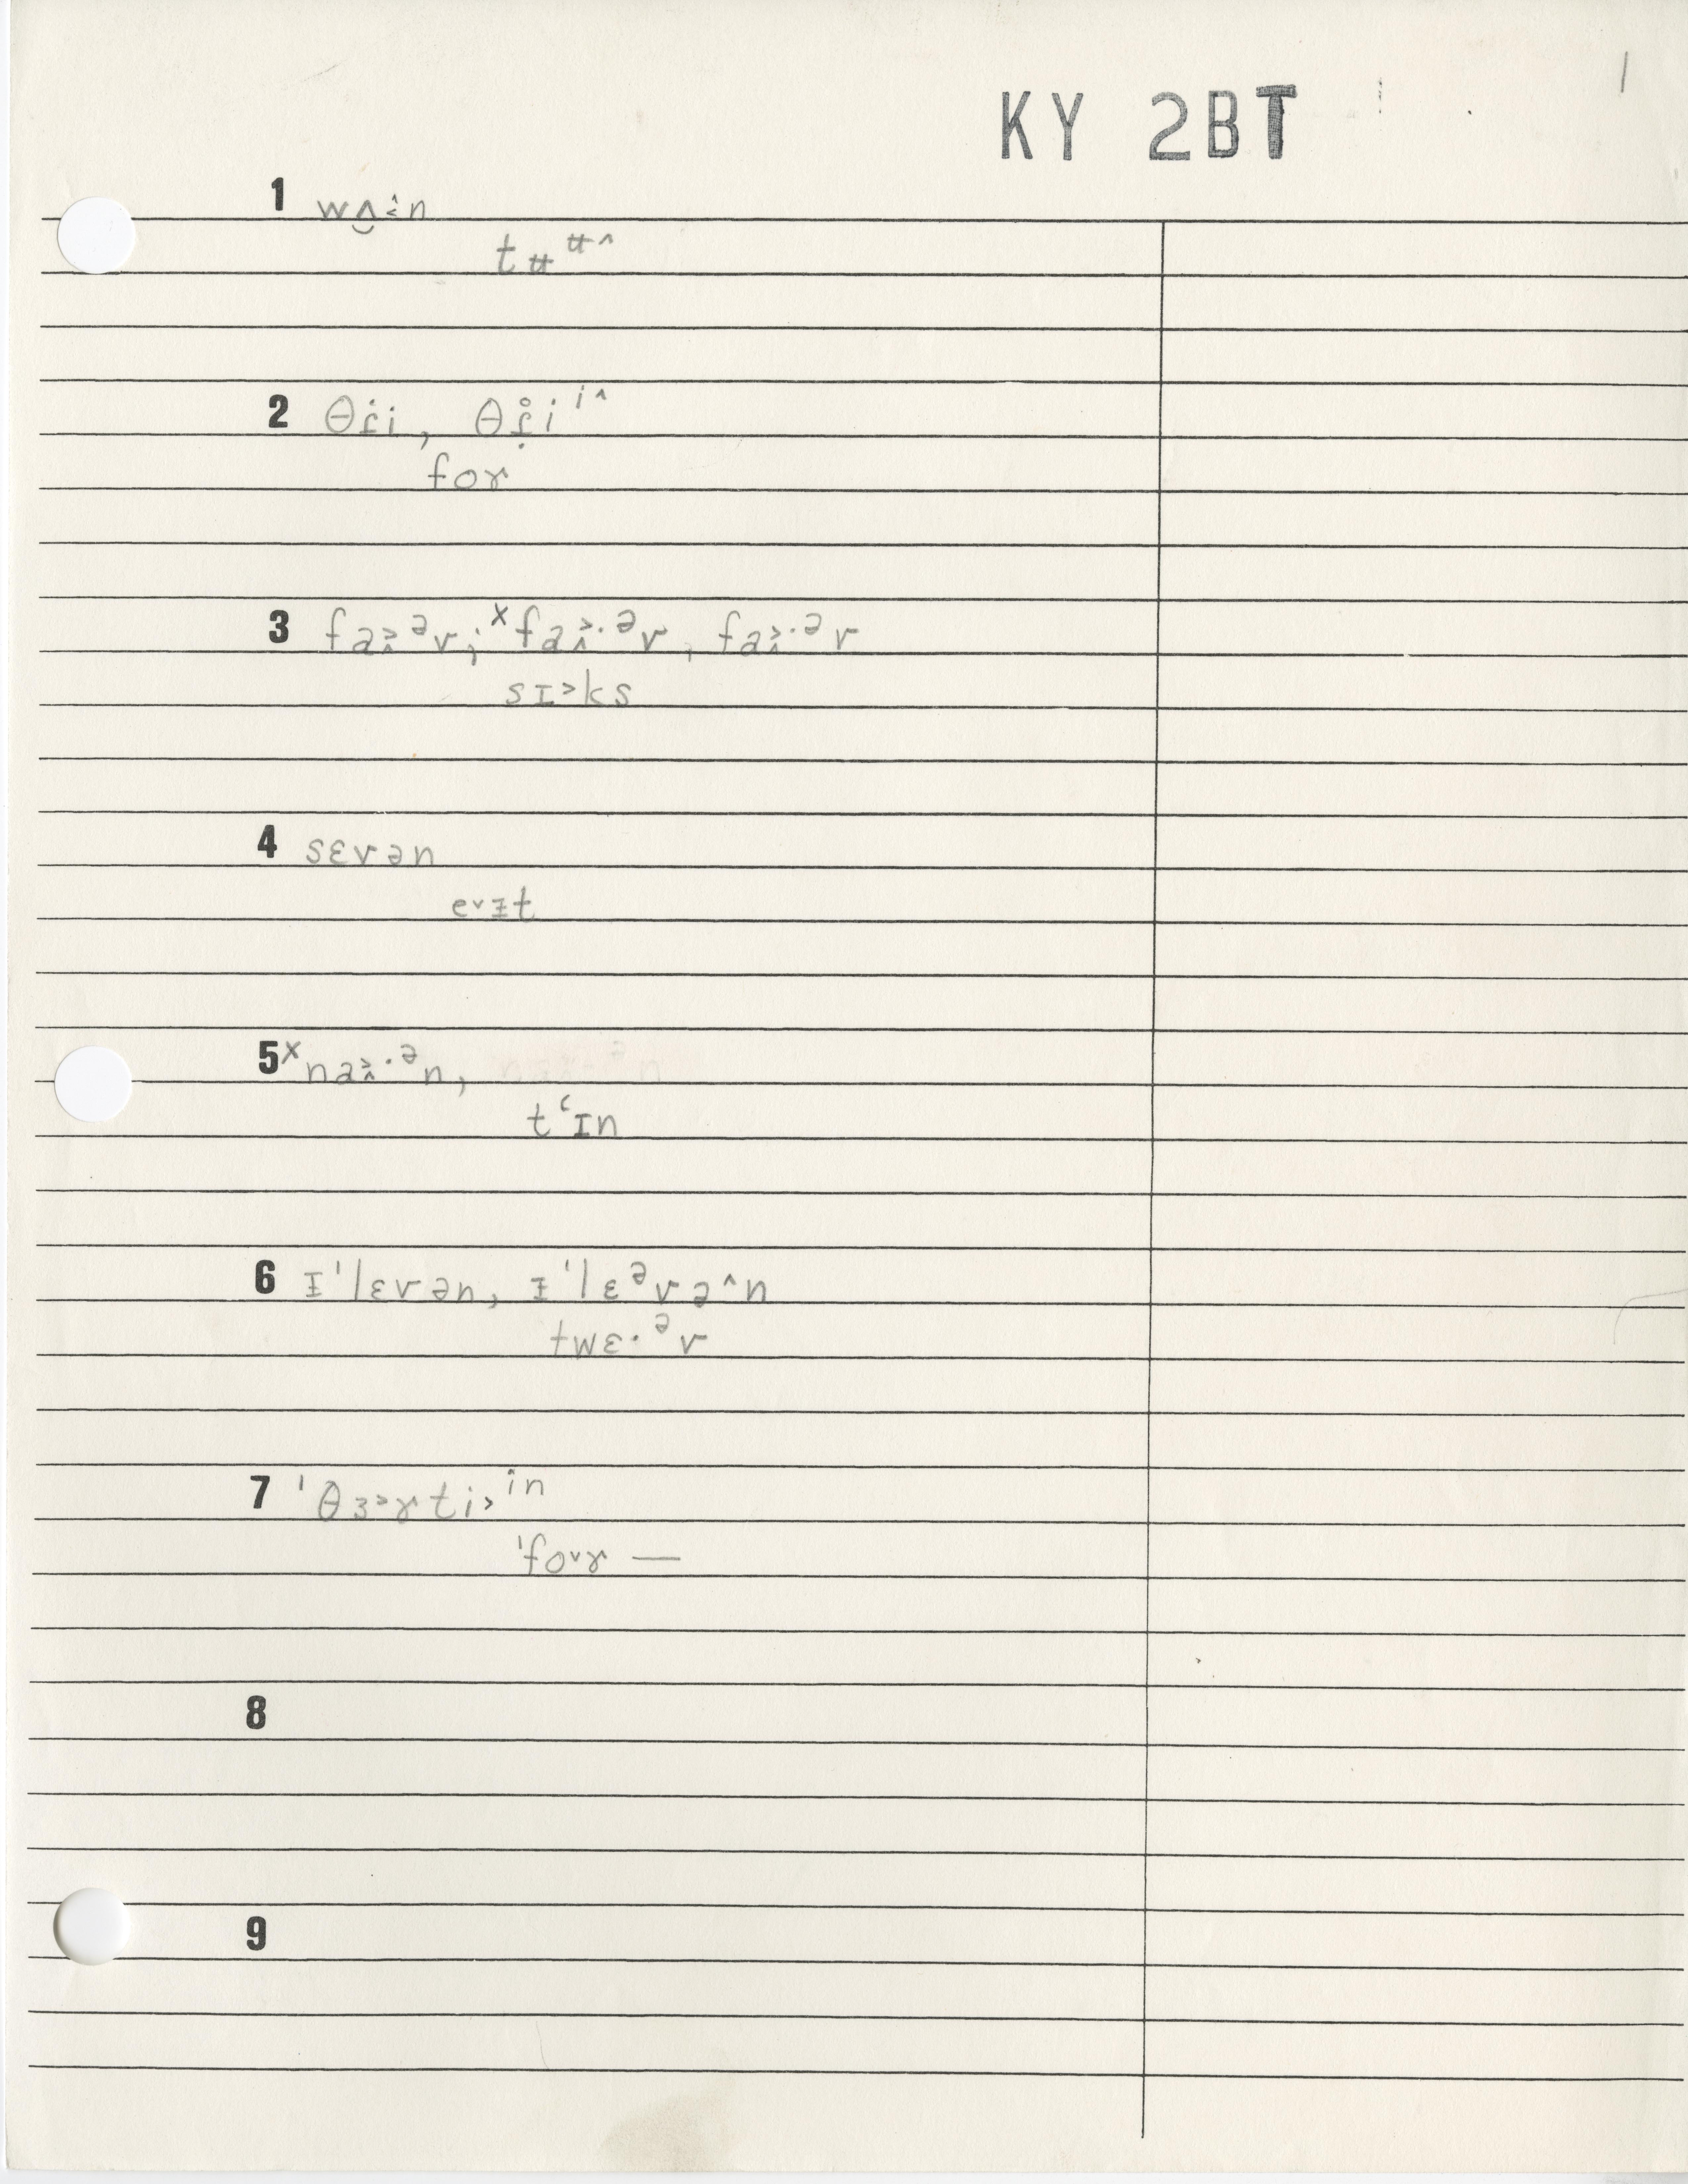 1
KY 2BT
1 wʌ̯˂̂n
tʉʉ^
2 θɾ̇i, θɾ̥̣iⁱ^
for
3 fa˃̭ᵊv; ˣfa˃̭·ᵊv, fa˃̭·ᵊv
sɪ˃ks
4 sɛvən
e˅ᵻt
5 ˣna˃̭·ᵊn,
tʻɪn
6 ᵻˈlɛvən, ᵻˈlɛᵊvə^n
twɛ·ᵊv
7 ˈθɜ˃ɤti˃î n
ˈfo˅ɤ —
8
9